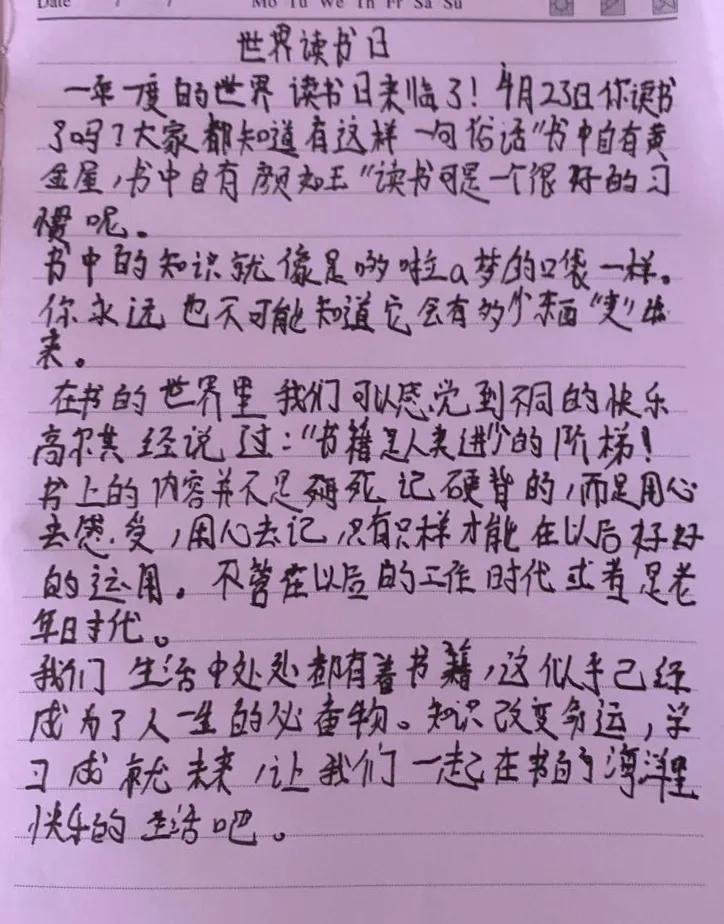 Date / / Mo Tu We Th Fr Sa Su
世界读书日
一年一度的世界读书日来临了！4月23日你读书
了吗？大家都知道有这样一句俗话"书中自有黄
金屋，书中自有颜如玉"读书可是一个很好的习
惯呢。
书中的知识就像是哆啦a梦的口袋一样。
你永远也不可能知道它会有多少东西"变"出
来。
在书的世界里我们可以感觉到不同的快乐
高尔基经说过："书籍是人类进步的阶梯！
书上的内容并不是死记硬背的，而是用心
去感受，用心去记，只有只样才能在以后好好
的运用。不管在以后的工作时代或者是老
年时代。
我们生活中处处都有着书籍，这似乎已经
成为了人一生的必备物。知识改变命运，学
习成就未来，让我们一起在书的海洋里
快乐的生活吧。